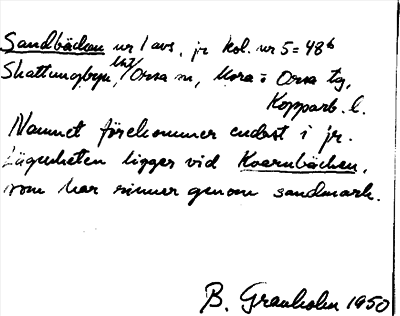 Sandbäcken nr 1 avs, jr kol. nr 5 = 48⁶
Skattungbyn, Orsa sn, Mora o Orsa tg,
Kopparb. l.
Namnet förekommer endast i jr.
Lägenheten ligger vid Kvarnbäcken,
som här rinner genom sandmark.
B. Granholm 1950